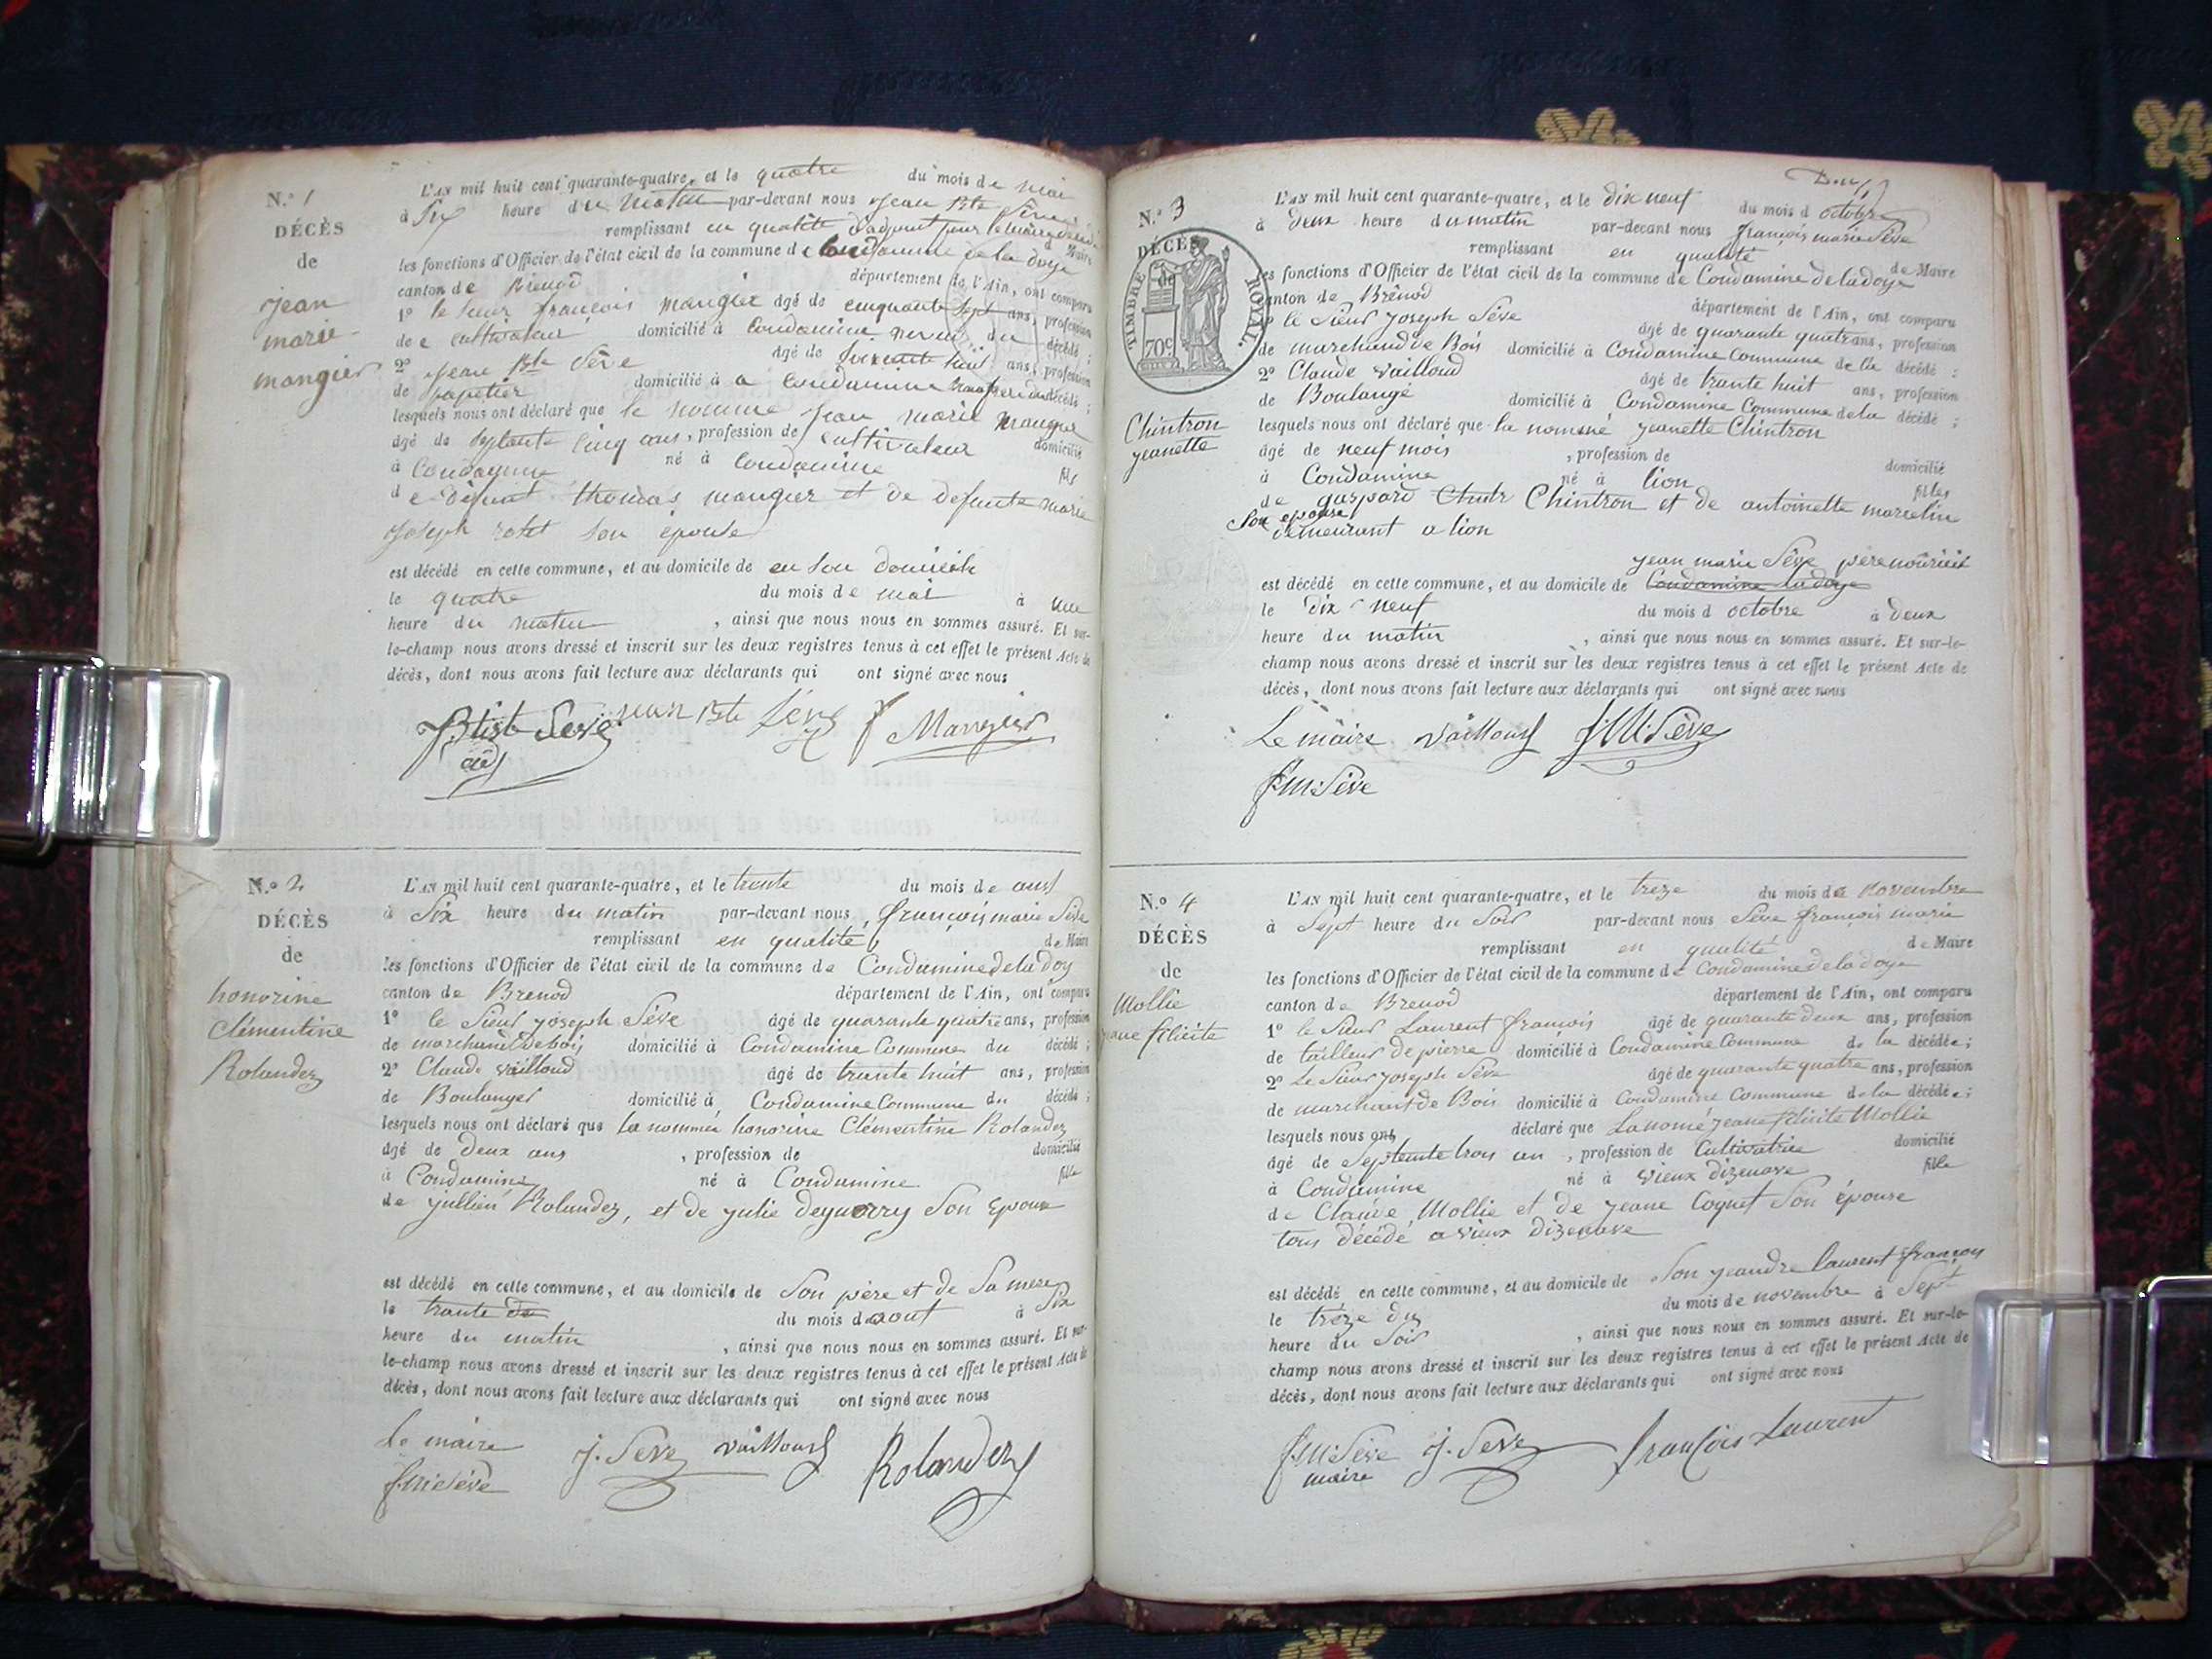 N.º 1
DÉCÈS
de
jean
marie
mangier
L'AN mil huit cent quarante-quatre, et le quatre du mois de mai
à Six heure du matin par-devant nous jean Bte Sève
remplissant en qualité d'adjoint pour le maire
les fonctions d'Officier de l'état civil de la commune de Condamine de la doye
canton de Brenod département de l'Ain, ont comparu
1º le Sieur françois mangier âgé de cinquante Sept ans, profession
de cultivateur domicilié à Condamine neveu du décédé ;
2º jean Bte Sève âgé de Soixante huit ans, profession
de papetier domicilié à a Condamine décédé ;
lesquels nous ont déclaré que le nommé jean marie mangier
âgé de Septante Cinq ans, profession de cultivateur domicilié
à Condamine né à Condamine fils
de défunt thomas mangier et de defunte marie
joseph rotet son epouse
est décédé en cette commune, et au domicile de en Son domicile
le quatre du mois de mai à une
heure du matin , ainsi que nous nous en sommes assuré. Et sur-
le-champ nous avons dressé et inscrit sur les deux registres tenus à cet effet le présent Acte de
décès, dont nous avons fait lecture aux déclarants qui ont signé avec nous
Btiste Seve jean Bte Sève f Mangier
adj
N.º 2
DÉCÈS
de
honorine
Clémentine
Rolandez
L'AN mil huit cent quarante-quatre, et le trente du mois de aust
à Six heure du matin par-devant nous françois marie Sève
remplissant en qualité de Maire
les fonctions d'Officier de l'état civil de la commune de Condamine de la doy
canton de Brenod département de l'Ain, ont comparu
1º le Sieur joseph Sève âgé de quarante quatre ans, profession
de marchand de bois domicilié à Condamine Commune du décédé ;
2º Claude vailloud âgé de trante huit ans, profession
de Boulanger domicilié à Condamine Commune du décédé ;
lesquels nous ont déclaré que la nommée honorine Clémentine Rolandez
âgé de deux ans , profession de domicilié
à Condamine né à Condamine fille
de jullien Rolandez, et de julie deguerry Son Epouse
est décédé en cette commune, et au domicile de Son père et de Sa mere
le trante du mois de aout à Six
heure du matin , ainsi que nous nous en sommes assuré. Et sur-
le-champ nous avons dressé et inscrit sur les deux registres tenus à cet effet le présent Acte de
décès, dont nous avons fait lecture aux déclarants qui ont signé avec nous
Le maire j. Seve vailloud Rolandez
f.m. Sève
N.º 3
DÉCÈS
de
TIMBRE ROYAL.
70c
Chintron
jeanette
L'AN mil huit cent quarante-quatre, et le dix neuf du mois d octobre
à deux heure du matin par-devant nous françois marie Sève
remplissant en qualité de Maire
les fonctions d'Officier de l'état civil de la commune de Condamine de la doye
canton de Brénod département de l'Ain, ont comparu
1º le Sieur joseph Sève âgé de quarante quatre ans, profession
de marchand de Bois domicilié à Condamine Commune de la décédé ;
2º Claude vailloud âgé de trante huit ans, profession
de Boulangé domicilié à Condamine Commune de la décédé ;
lesquels nous ont déclaré que la nommé jeanette Chintron
âgé de neuf mois , profession de domicilié
à Condamine né à lion filles
de gaspard Chintron et de antoinette marcelin
Son epouse
demeurant a lion
jean marie Sève père nouricié
est décédé en cette commune, et au domicile de Condamine la doye
le dix neuf du mois d octobre à deux
heure du matin , ainsi que nous nous en sommes assuré. Et sur-le-
champ nous avons dressé et inscrit sur les deux registres tenus à cet effet le présent Acte de
décès, dont nous avons fait lecture aux déclarants qui ont signé avec nous
Le maire vailloud J.M. Sève
f.m. Sève
N.º 4
DÉCÈS
de
Mollie
jeane felicite
L'AN mil huit cent quarante-quatre, et le treze du mois de novembre
à Sept heure du Soir par-devant nous Sève françois marie
remplissant en qualité de Maire
les fonctions d'Officier de l'état civil de la commune de Condamine de la doye
canton de Brenod département de l'Ain, ont comparu
1º le Sieur Laurent françois âgé de quarante deux ans, profession
de tailleur de pierre domicilié à Condamine Commune de la décédée ;
2º Le Sieur joseph Sève âgé de quarante quatre ans, profession
de marchant de Bois domicilié à Condamine Commune de la décédée ;
lesquels nous ont déclaré que La nomé jeane félicite Mollie
âgé de Septente trois an , profession de Cultivatrice domicilié
à Condamine né à vieux dizenave fille
de Claude Mollie et de jeane Coquet Son épouse
tous décédé a vieux dizenave
est décédé en cette commune, et au domicile de Son jeandre laurent françois
le treze du du mois de novembre à Sept
heure du Soir , ainsi que nous nous en sommes assuré. Et sur-le-
champ nous avons dressé et inscrit sur les deux registres tenus à cet effet le présent Acte de
décès, dont nous avons fait lecture aux déclarants qui ont signé avec nous
f.m. Sève j. Seve françois Laurent
maire